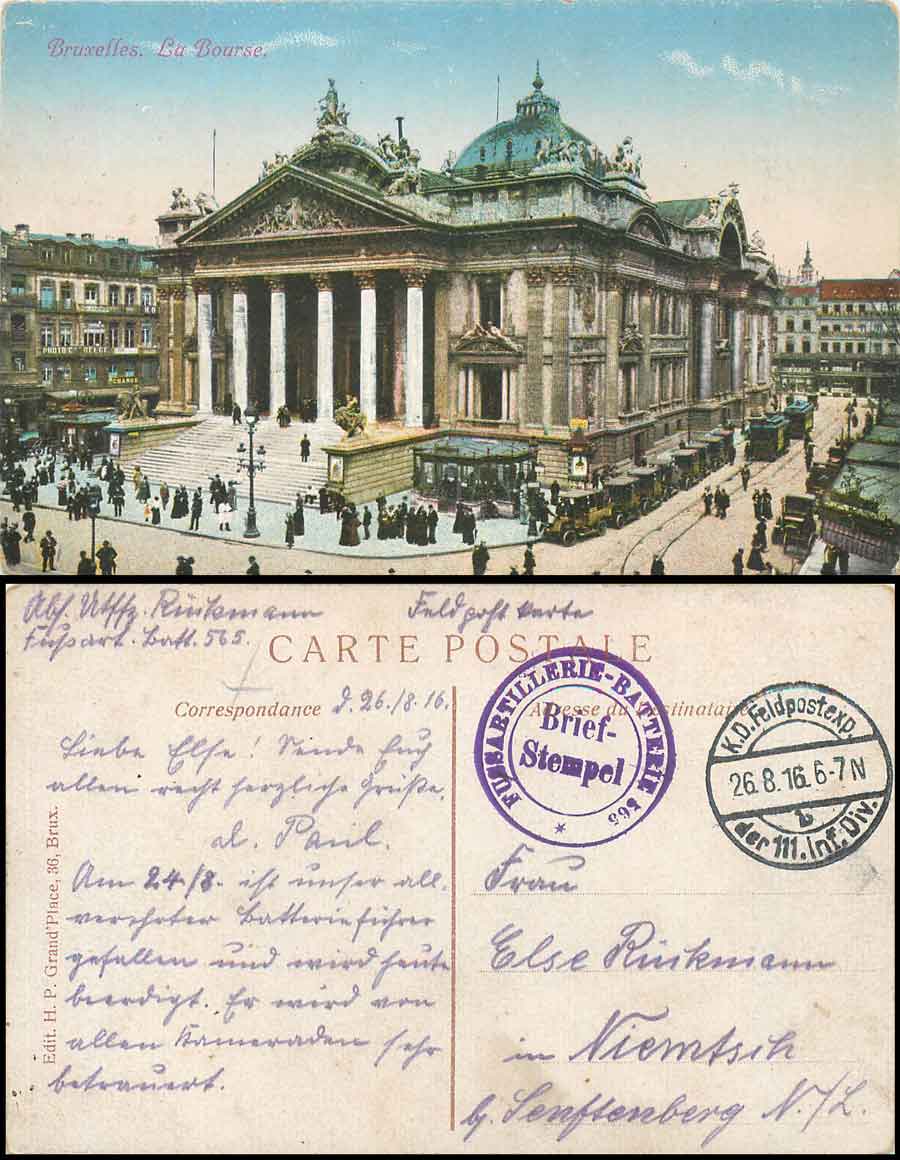 Bruxelles. La Bourse.
CHANGE
Abs. Utffz. Rückmann
Fußart. Batt. 565.
Feldpostkarte
CARTE POSTALE
Correspondance
d. 26./8.16.
Adresse du Destinataire
FUSSARTILLERIE-BATTERIE 565
Brief-
Stempel
K.D. Feldpostexp.
26.8.16. 6-7 N
b
der 111. Inf.-Div.
Liebe Else! Sende Euch
allen recht herzliche Grüße.
d. Paul.
Am 24./8. ist unser all-
verehrter Batterieführer
gefallen und wird heute
beerdigt. Er wird von
allen Kameraden sehr
betrauert.
Edit. H. P. Grand'Place, 36, Brux.
Frau
Else Rückmann
in Niemtsch
b. Senftenberg N./L.